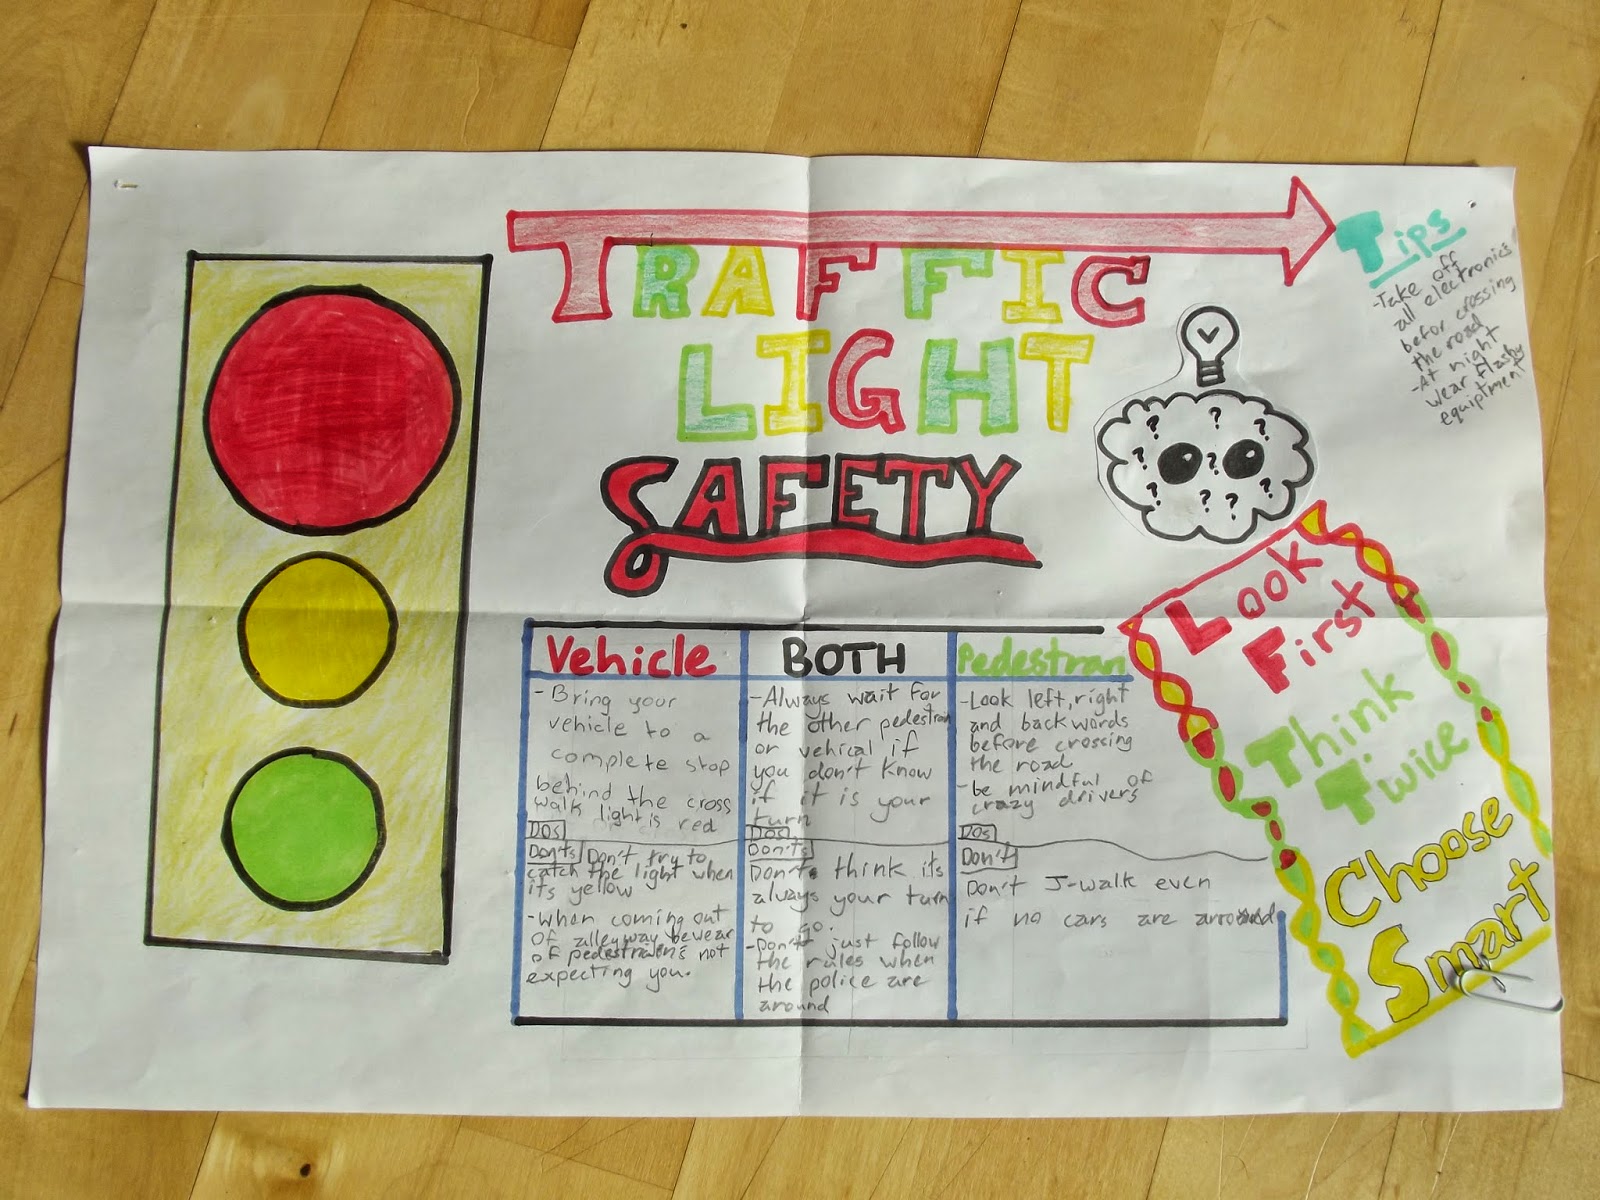 TRAFFIC
LIGHT
SAFETY
Tips
-Take off
all electronics
befor crossing
the road
-At night
wear flashy
equiptment
? ? ?
? ?
? ? ? ?
Look
First
Think
Twice
Choose
Smart
Vehicle
- Bring your
vehicle to a
complete stop
behind the cross
walk light is red
DOs
Don'ts Don't try to
catch the light when
its yellow
-when coming out
of alleyway bewear
of pedestraian's not
expecting you.
BOTH
-Always wait for
the other pedestran
or vehical if
you don't know
if it is your
turn
DOs
Don'ts
Don't think its
always your turn
to go.
-Don't just follow
the rules when
the police are
around
Pedestran
-Look left, right
and backwords
before crossing
the road
-be mindful of
crazy drivers
DOs
Don't
Don't J-walk even
if no cars are around